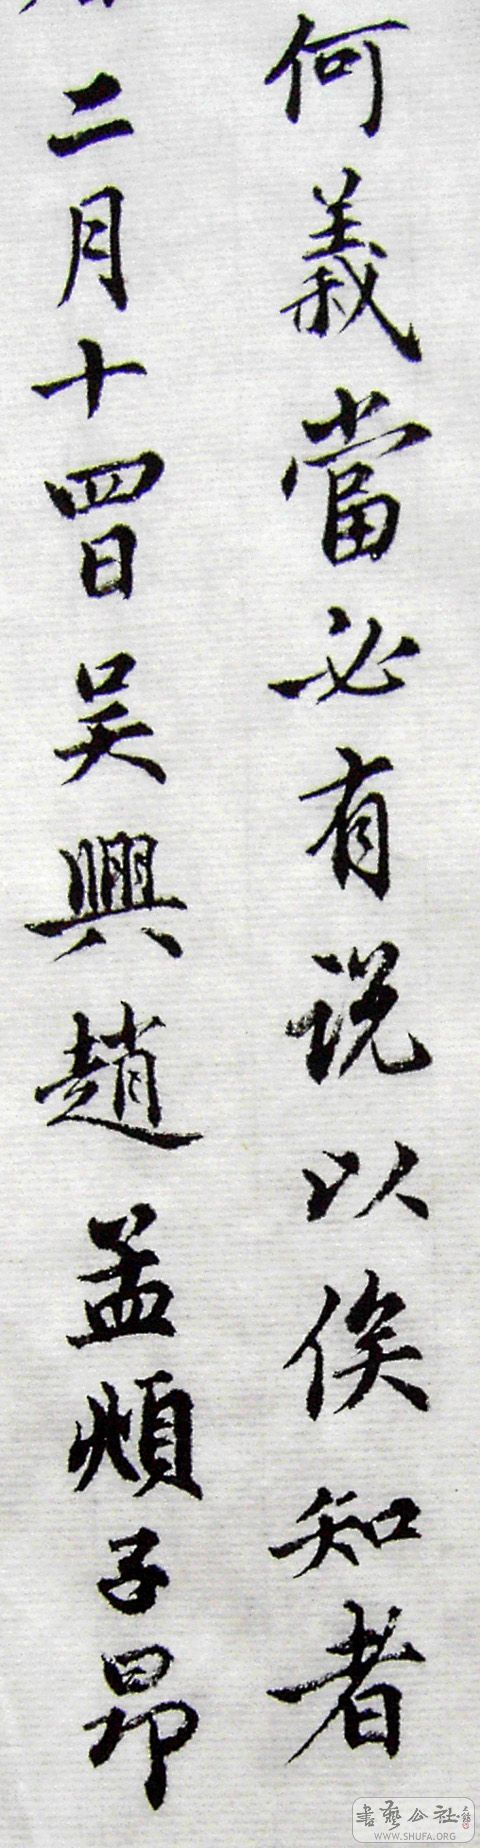 何義當必有説以俟知者
二月十四日吴興趙孟頫子昂
書藝公社
WWW.SHUFA.ORG